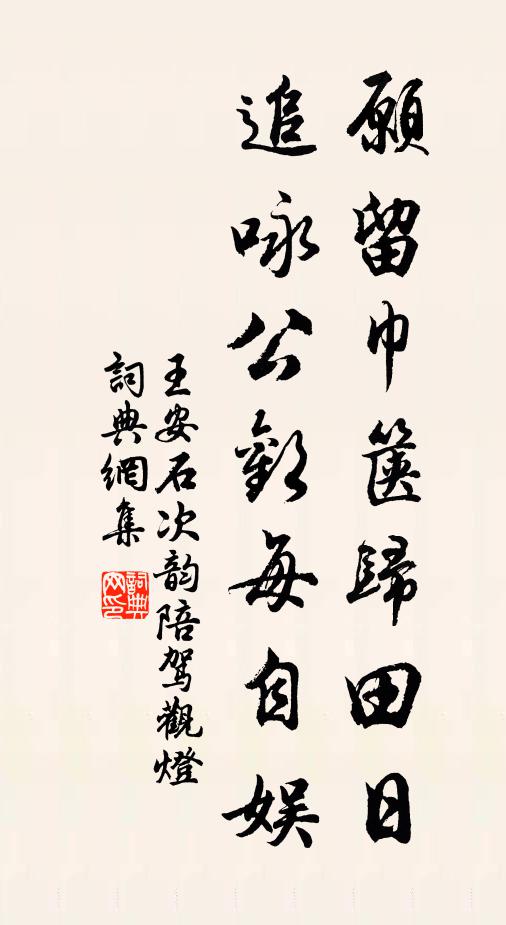 願留巾篋歸田日
追咏公歡每自娱
王安石次韵陪駕觀燈
詞典網集
詞典網印